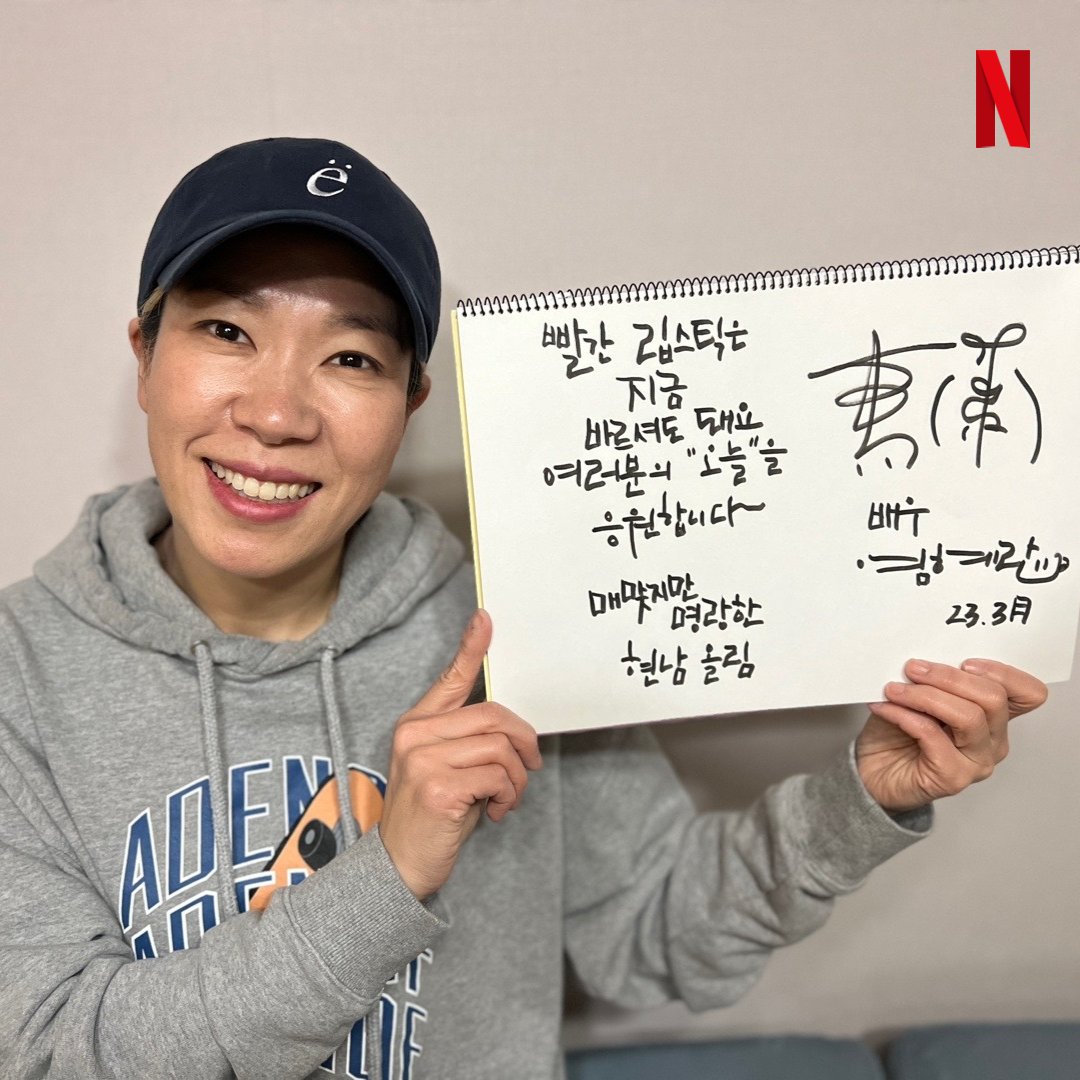 N
ë
빨간 립스틱은
지금
바르셔도 돼요
여러분의 "오늘"을
응원합니다~
매맞지만
명랑한
현남 올림
배우
염혜란
23. 3月
ADEN